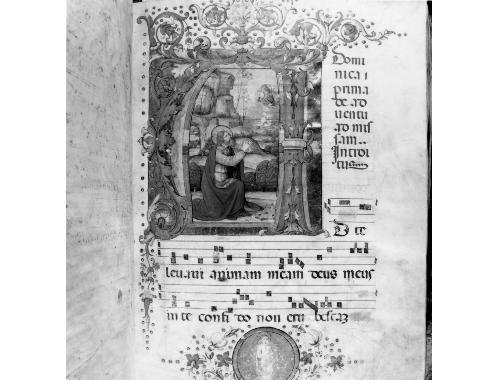 Domi
nica i
prima
de ad
uentu
ad mis
sam.
Introi
tus
D te
leuaui animam meam deus meus
in te confi do non eru bescaz